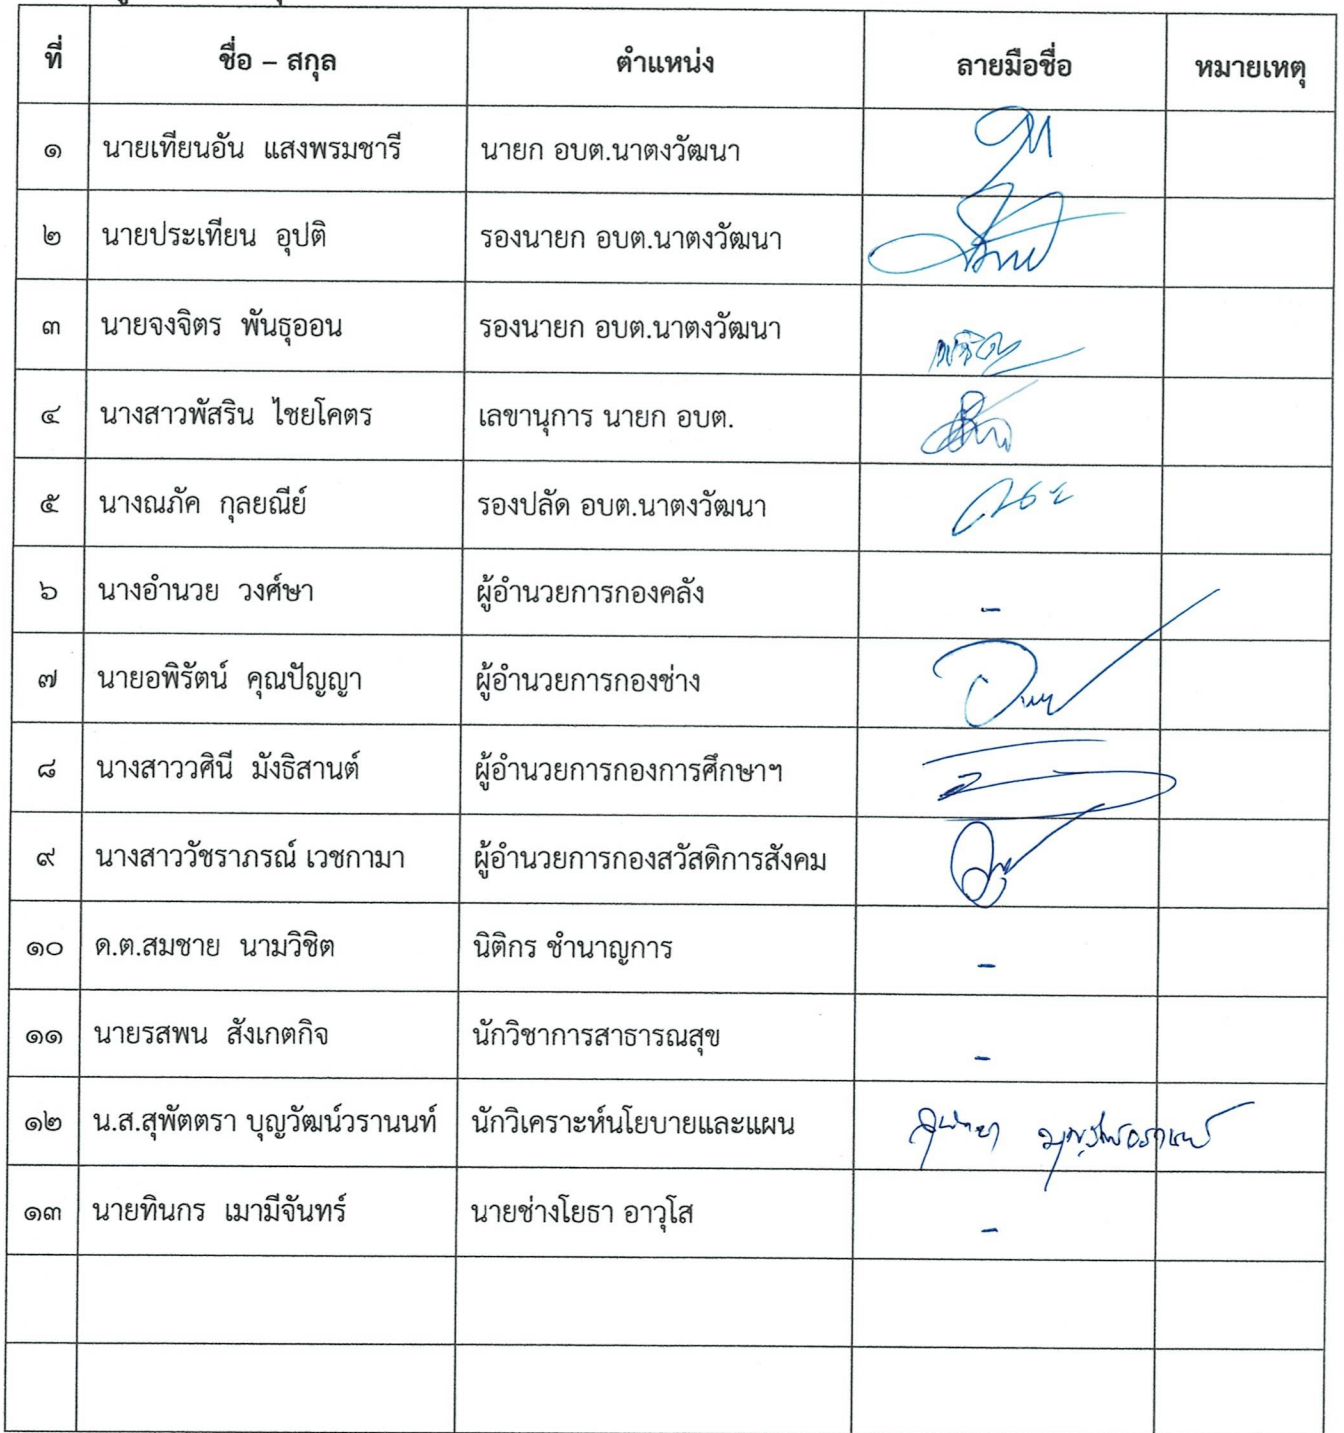 ที่ ชื่อ – สกุล ตำแหน่ง ลายมือชื่อ หมายเหตุ
๑ นายเทียนอัน แสงพรมชารี นายก อบต.นาตงวัฒนา
๒ นายประเทียน อุปติ รองนายก อบต.นาตงวัฒนา
๓ นายจงจิตร พันธุออน รองนายก อบต.นาตงวัฒนา
๔ นางสาวพัสริน ไชยโคตร เลขานุการ นายก อบต.
๕ นางณภัค กุลยณีย์ รองปลัด อบต.นาตงวัฒนา
๖ นางอำนวย วงศ์ษา ผู้อำนวยการกองคลัง -
๗ นายอพิรัตน์ คุณปัญญา ผู้อำนวยการกองช่าง
๘ นางสาววศินี มังธิสานต์ ผู้อำนวยการกองการศึกษาฯ
๙ นางสาววัชราภรณ์ เวชกามา ผู้อำนวยการกองสวัสดิการสังคม
๑๐ ด.ต.สมชาย นามวิชิต นิติกร ชำนาญการ -
๑๑ นายรสพน สังเกตกิจ นักวิชาการสาธารณสุข -
๑๒ น.ส.สุพัตตรา บุญวัฒน์วรานนท์ นักวิเคราะห์นโยบายและแผน
๑๓ นายทินกร เมามีจันทร์ นายช่างโยธา อาวุโส -